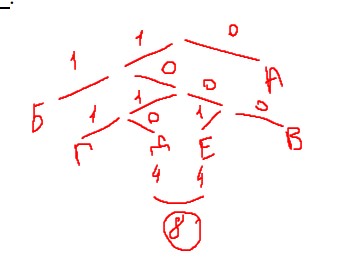 1 0
1 0 А
Б 1 1 0 1 0 0
Г Д Е В
4 4
8